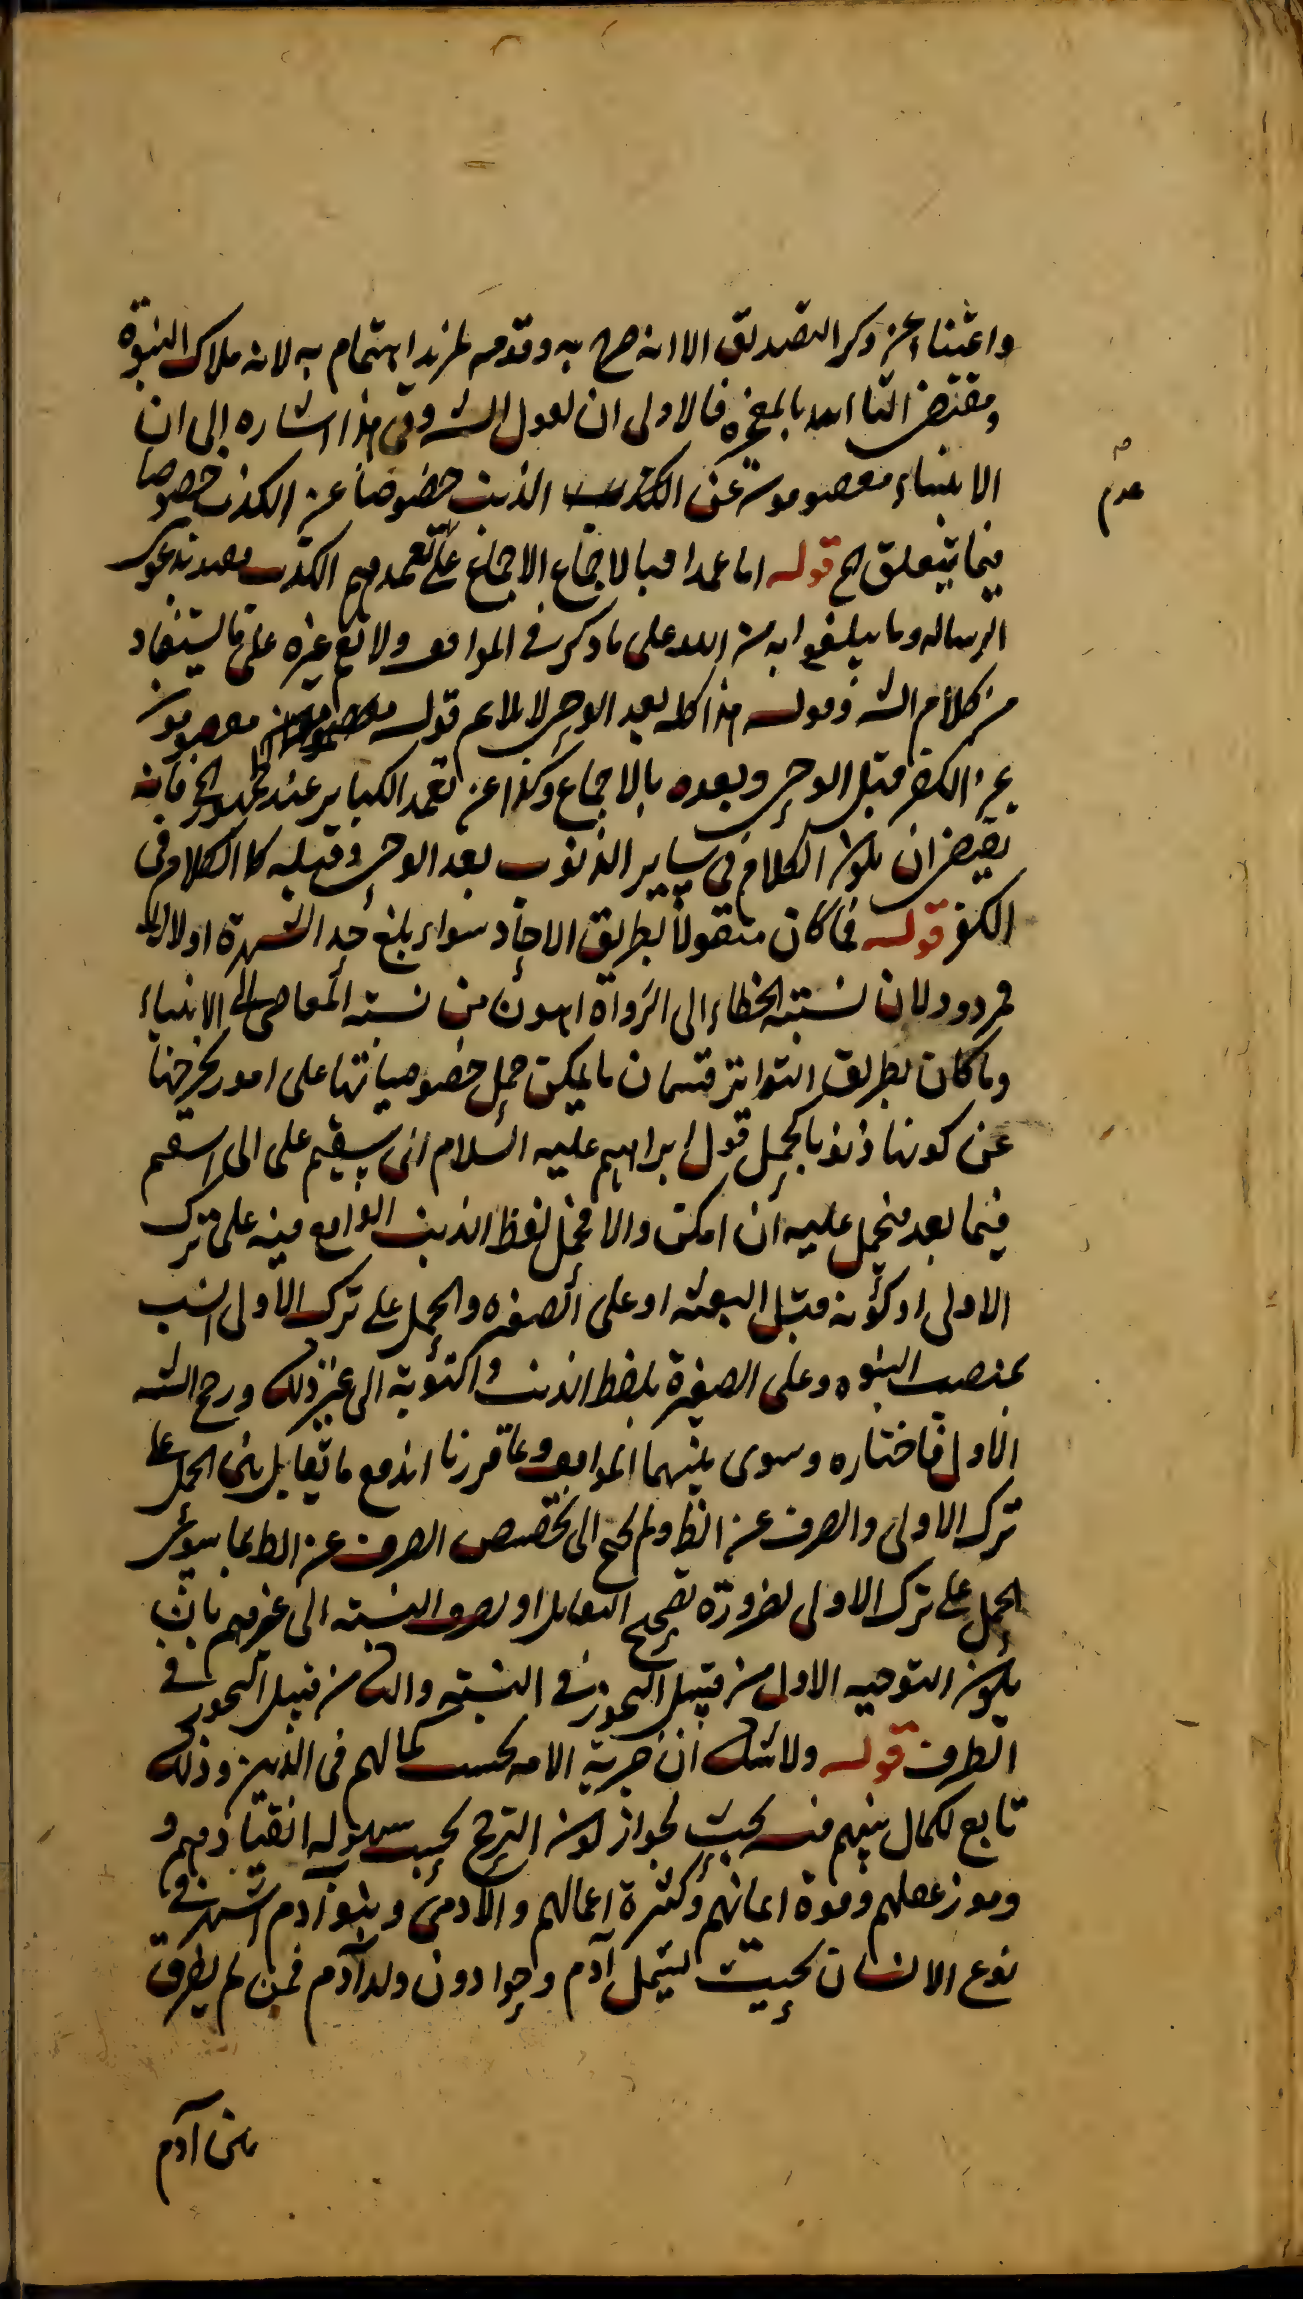 واغننا عن ذكر التصديق الا انه صرح به وقدمه لمزيد اهتمام به لانه ملاك النبوة
ومقتضى التاييد بالمعجزه فالاولى ان يقول الشه وفى هذا اشاره الى ان
الانبياء معصومون عن الكذب الذنب خصوصا عن الكذب خصوصا
فيما يتعلق الخ قوله اما عمدا فبالاجماع الاجماع على تعمدهم الكذب بعد دعوى
عدم
الرساله وما يبلغوا به من الله على ما ذكر فى المواقف ولا يعم غيره على ما يستفاد
من كلام الشه وقوله هذا كله بعد الوحى لا يلايم قوله معصومون
عن الكفر قبل الوحى وبعده بالاجماع وكذا عن تعمد الكباير عند الجمهور الخ فانه
يقتضى ان يكون الكلام فى ساير الذنوب بعد الوحى وقبله كالكلام فى
الكفر قوله فما كان منقولا بطريق الاحاد سواء بلغ حد الشهرة اولا
فمردود لان نسبته الخطاء الى الرواة اهون من نسبته المعاصى الى الانبياء
وما كان بطريق التواتر قسمان ما يمكن حمل خصوصياتها على امور يخرجها
عن كونها ذنوبا كحمل قول ابراهيم عليه السلام انى سقيم على انى اسقم
فيما بعد فيحمل عليه ان امكن والا فيحمل لفظ الذنب الواقع فيه على ترك
الاولى او كونه قبل البعثه او على الصغيره والحمل على ترك الاولى انسب
بمنصب النبوه وعلى الصغيرة بلفظ الذنب والتوبة الى غير ذلك ورجح الشه
الاول فاختاره وسوى بينهما المواقف وبما قررنا اندفع ما يقابل بين الحمل على
ترك الاولى والصرف عن الظ ولم يحتج الى تخصيص الصرف عن الظ بما سوى
الحمل على ترك الاولى لضرورة تصحيح التقابل او بصرف النسبته الى غيرهم بان
يكون التوجيه الاول من قبيل التجوز فى النسبته والثانى من قبيل التجوز فى
الطرف قوله ولا شك ان خيرية الامه بحسب كمالهم فى الدين وذلك
تابع لكمال نبيهم فيه بحث لجواز كون الترجح بحسب سهولة انقيادهم و
وفور عقلهم وقوة ايمانهم وكثرة اعمالهم والآدمى وبنو آدم اشهر فى
نوع الانسان بحيث يشمل آدم وحوا دون ولد آدم فمن لم يفرق
بنى آدم